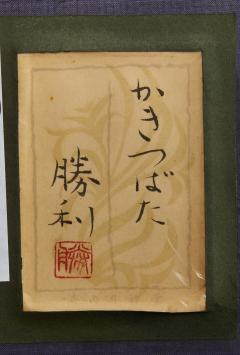 かきつばた
勝利